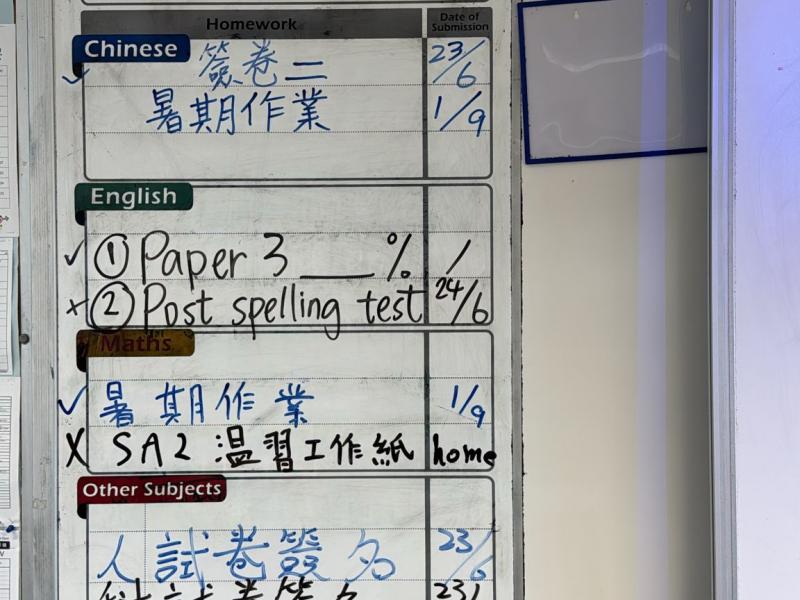 Homework Date of Submission
Chinese
簽卷二 23/6
暑期作業 1/9
English
① Paper 3 ____ % /
② Post spelling test 24/6
Maths
暑期作業 1/9
SA2 溫習工作紙 home
Other Subjects
人試卷簽名 23/6
試卷簽名 23/